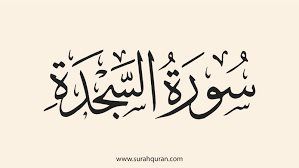 سُورَةُ السَّجْدَةِ
www.surahquran.com